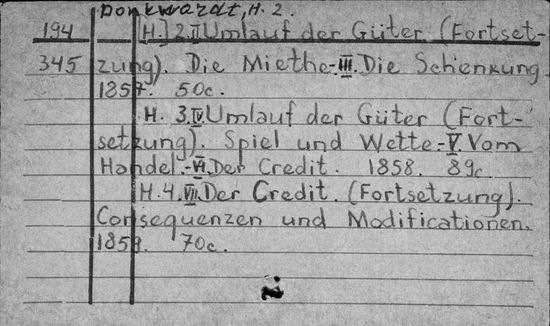 Donkwardt, H. 2.
194 H.] 2. II Umlauf der Güter (Fortset-
345 zung). Die Miethe.-III. Die Schenkung.
1857. 50c.
H. 3. IV Umlauf der Güter (Fort-
setzung). Spiel und Wette.-V. Vom
Handel.-VI. Der Credit. 1858. 89c.
H. 4. VII. Der Credit. (Fortsetzung).
Consequenzen und Modificationen.
1859. 70c.